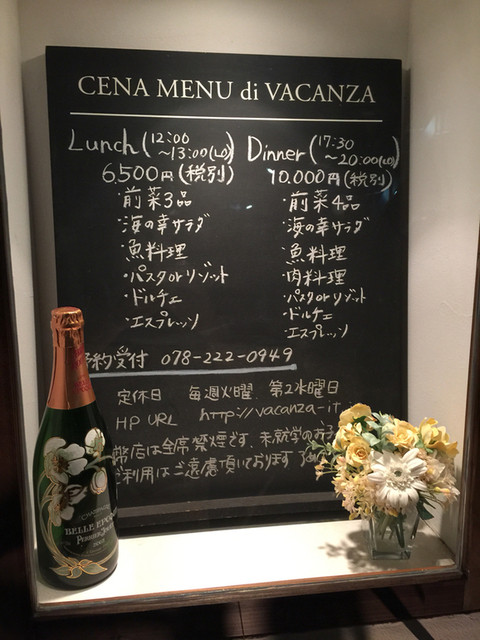 CENA MENU di VACANZA
Lunch (12:00～13:00(LO))
6,500円(税別)
・前菜3品
・海の幸サラダ
・魚料理
・パスタorリゾット
・ドルチェ
・エスプレッソ
Dinner (17:30～20:00(LO))
10.000円(税別)
・前菜4品
・海の幸サラダ
・魚料理
・肉料理
・パスタorリゾット
・ドルチェ
・エスプレッソ
予約受付 078-222-0949
定休日 毎週火曜、第2水曜日
HP URL http://vacanza-it.
弊店は全席禁煙です、未就学のお子
ご利用はご遠慮頂いております
BELLE EPOQUE
PERRIER-JOUËT